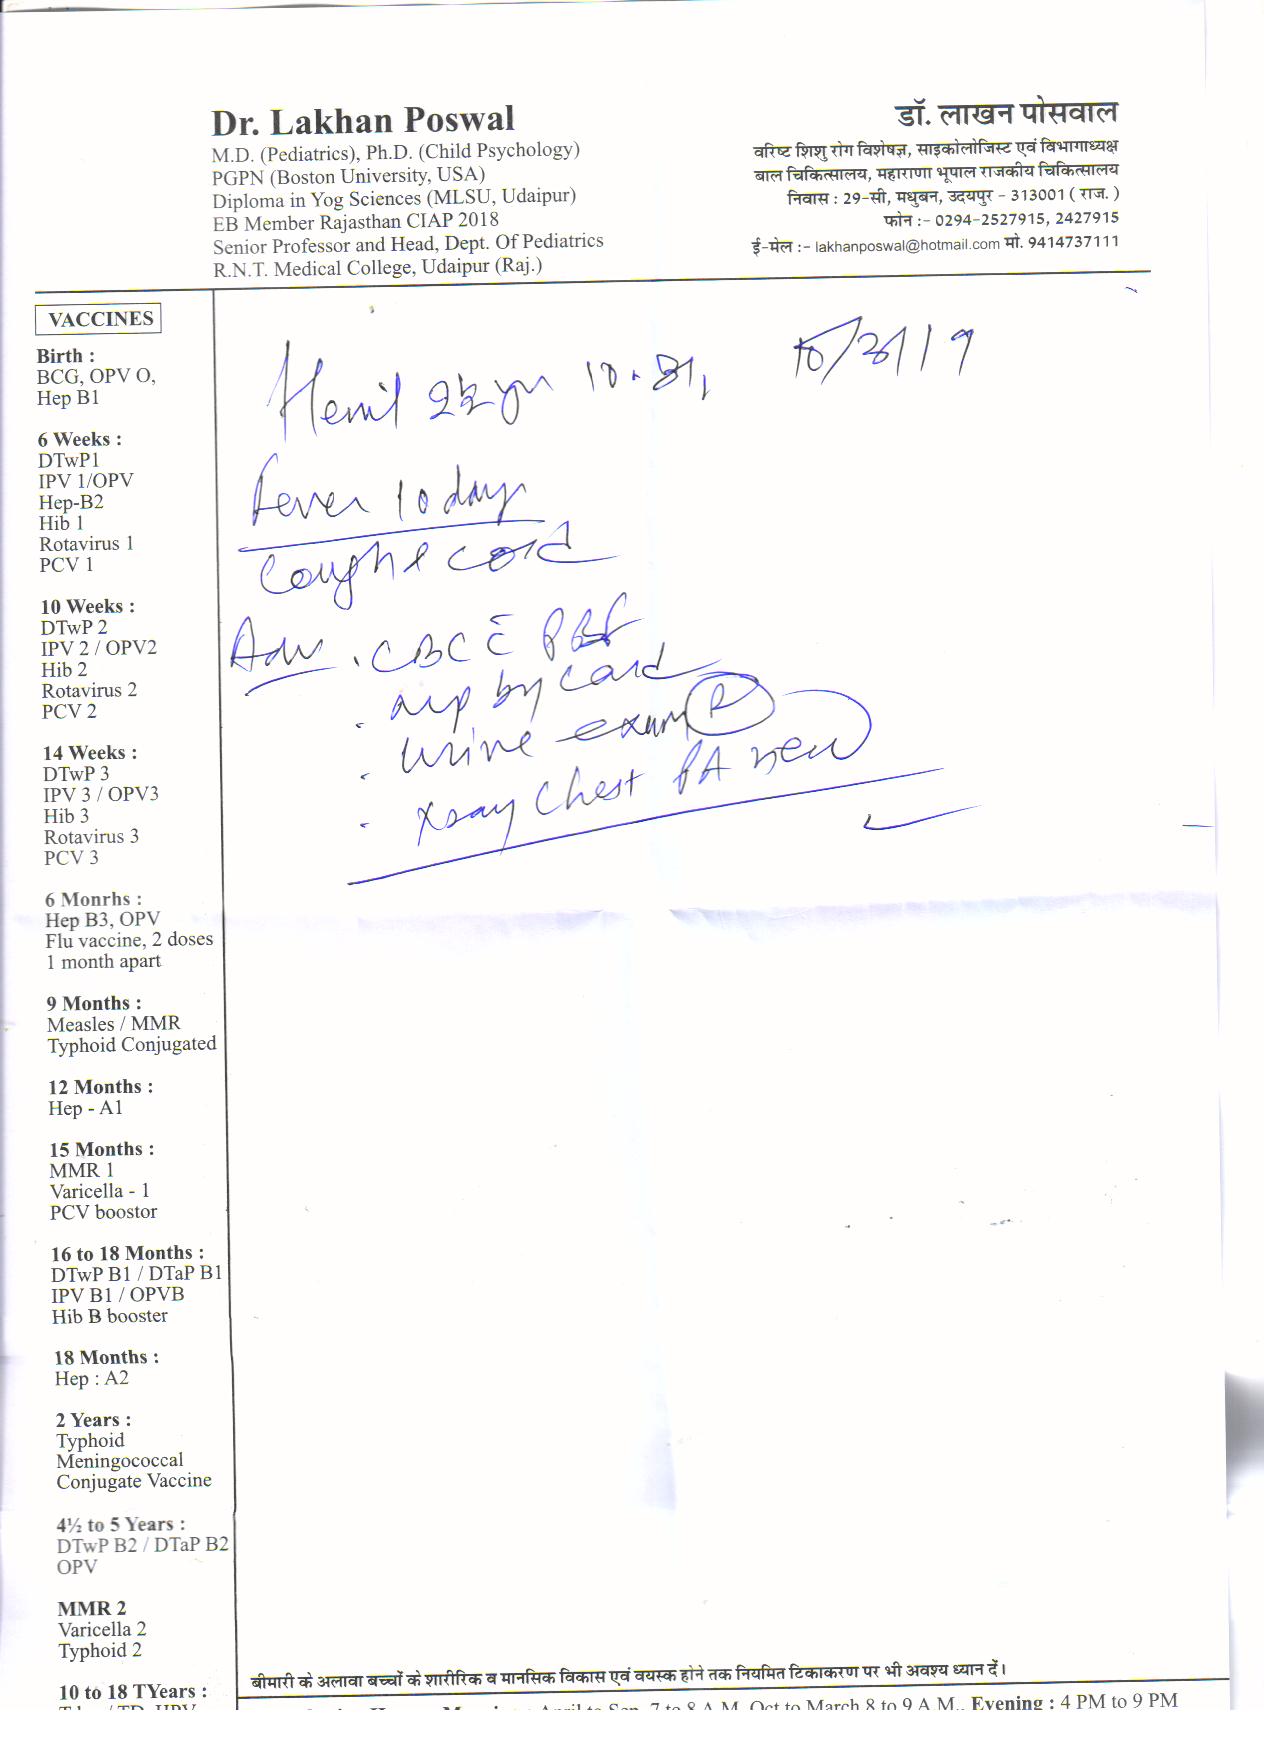 Dr. Lakhan Poswal
M.D. (Pediatrics), Ph.D. (Child Psychology)
PGPN (Boston University, USA)
Diploma in Yog Sciences (MLSU, Udaipur)
EB Member Rajasthan CIAP 2018
Senior Professor and Head, Dept. Of Pediatrics
R.N.T. Medical College, Udaipur (Raj.)
डॉ. लाखन पोसवाल
वरिष्ट शिशु रोग विशेषज्ञ, साइकोलोजिस्ट एवं विभागाध्यक्ष
बाल चिकित्सालय, महाराणा भूपाल राजकीय चिकित्सालय
निवास : 29-सी, मधुबन, उदयपुर - 313001 ( राज. )
फोन :- 0294-2527915, 2427915
ई-मेल :- lakhanposwal@hotmail.com मो. 9414737111
VACCINES
Birth :
BCG, OPV O,
Hep B1
6 Weeks :
DTwP1
IPV 1/OPV
Hep-B2
Hib 1
Rotavirus 1
PCV 1
10 Weeks :
DTwP 2
IPV 2 / OPV2
Hib 2
Rotavirus 2
PCV 2
14 Weeks :
DTwP 3
IPV 3 / OPV3
Hib 3
Rotavirus 3
PCV 3
6 Monrhs :
Hep B3, OPV
Flu vaccine, 2 doses
1 month apart
9 Months :
Measles / MMR
Typhoid Conjugated
12 Months :
Hep - A1
15 Months :
MMR 1
Varicella - 1
PCV boostor
16 to 18 Months :
DTwP B1 / DTaP B1
IPV B1 / OPVB
Hib B booster
18 Months :
Hep : A2
2 Years :
Typhoid
Meningococcal
Conjugate Vaccine
4½ to 5 Years :
DTwP B2 / DTaP B2
OPV
MMR 2
Varicella 2
Typhoid 2
10 to 18 TYears :
Hemil
Fever 10 days
Cough & cold
Adv . CBC c̄ PBF
. mp by Card
. Urine exam (R)
. Xray Chest PA view
बीमारी के अलावा बच्चों के शारीरिक व मानसिक विकास एवं वयस्क होने तक नियमित टिकाकरण पर भी अवश्य ध्यान दें।
April to Sep. 7 to 8 A.M. Oct to March 8 to 9 A.M., Evening : 4 PM to 9 PM